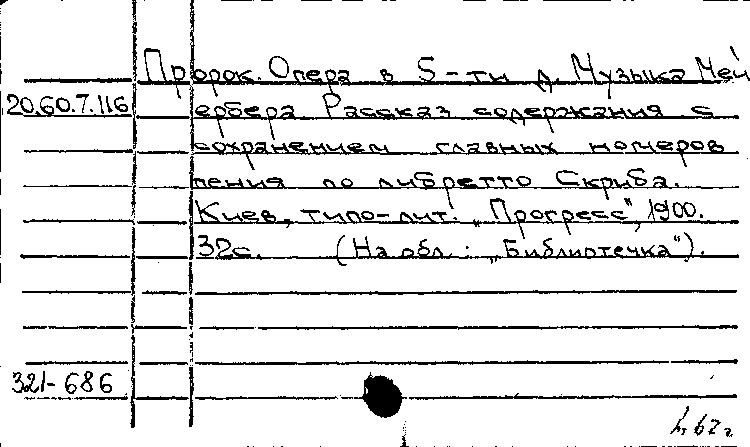 Пророк. Опера в 5-ти д. Музыка Мей
20.60.7.116 ербера. Рассказ содержания с
сохранением главных номеров
пения по либретто Скриба.
Киев, типо-лит. „Прогресс", 1900.
32с. (На обл.: „Библиотечка").
321-686
67 г